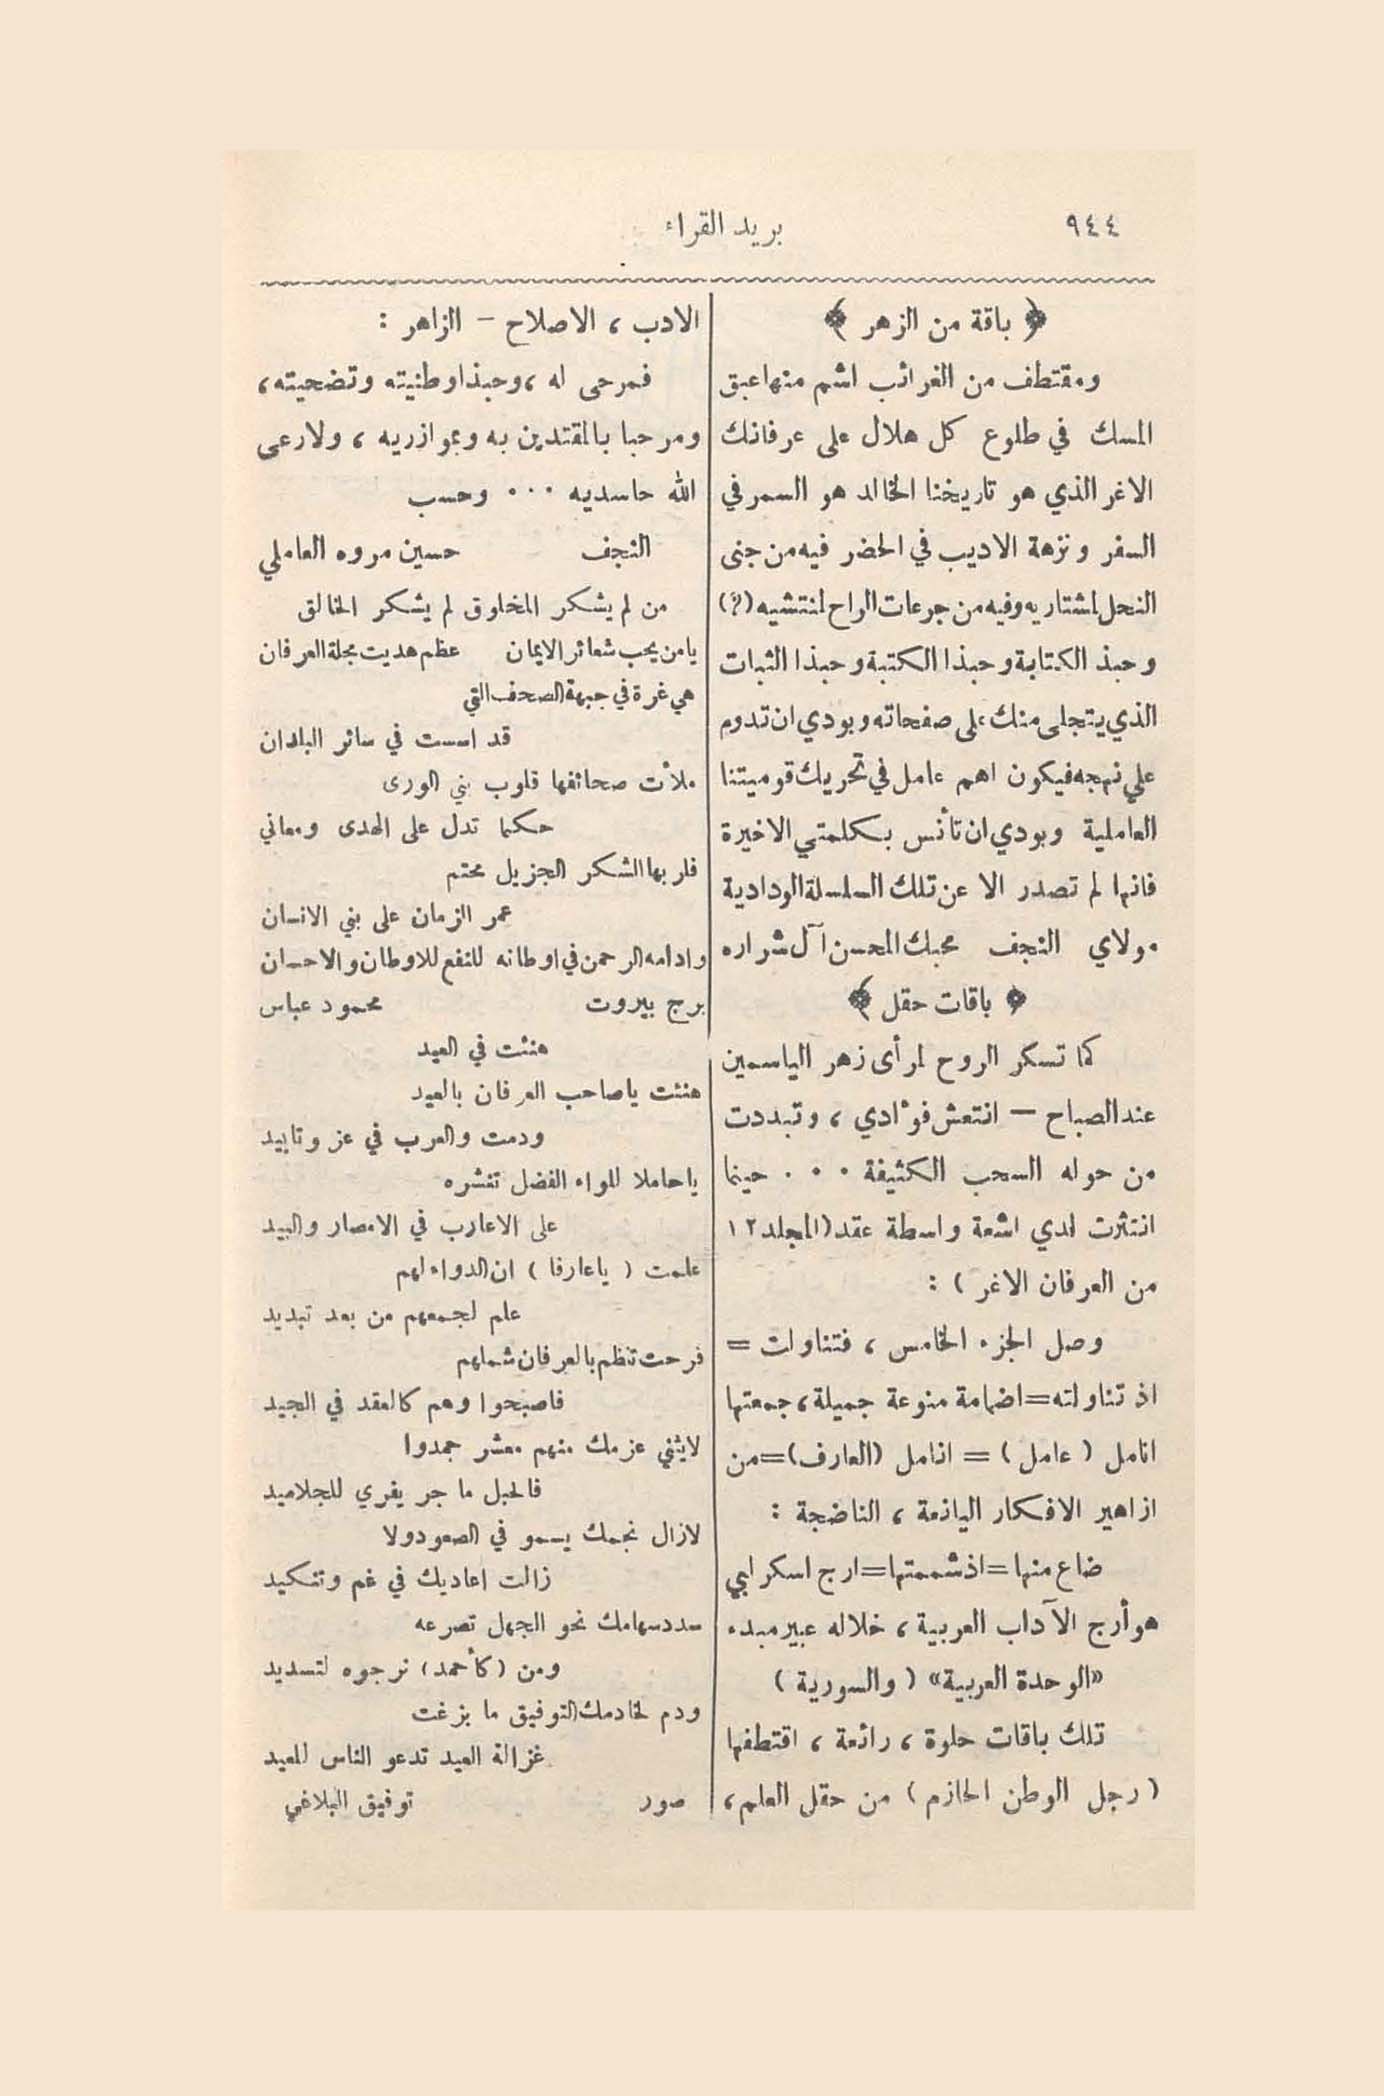 ٩٤٤
بريد القراء
﴿ باقة من الزهر ﴾
ومقتطف من الغرائب اشم منها عبق
المسك في طلوع كل هلال على عرفانك
الاغر الذي هو تاريخنا الخالد هو السمر في
السفر ونزهة الاديب في الحضر فيه من جنى
النحل لمشتاريه وفيه من جرعات الراح لمنتشيه (؟)
وحبذ الكتابة وحبذا الكتبة وحبذا الثبات
الذي يتجلى منك على صفحاته وبودي ان تدوم
على نهجه فيكون اهم عامل في تحريك قوميتنا
العاملية وبودي ان تأنس بكلمتي الاخيرة
فانها لم تصدر الا عن تلك السلسلة الودادية
مولاي النجف محبك المحسن آل شراره
﴿ باقات حقل ﴾
كما تسكر الروح لمرأى زهر الياسمين
عند الصباح – انتعش فوءادي ، وتبددت
من حوله السحب الكثيفة ٠٠٠ حينما
انتثرت لدي اشعة واسطة عقد (المجلد ١٢
من العرفان الاغر ) :
وصل الجزء الخامس ، فتناولت =
اذ تناولته = اضمامة منوعة جميلة ، جمعتها
انامل ( عامل ) = انامل (العارف) = من
ازاهير الافكار اليانعة ، الناضجة :
ضاع منها = اذ شممتها = ارج اسكر لبي
هو أرج الآداب العربية ، خلاله عبير مبدء
«الوحدة العربية» ( والسورية )
تلك باقات حلوة ، رائعة ، اقتطفها
( رجل الوطن الحازم ) من حقل العلم ،
الادب ، الاصلاح – الزاهر :
فمرحى له ، وحبذا وطنيته وتضحيته ،
ومرحبا بالمقتدين به وبموازريه ، ولا رعى
الله حاسديه ٠٠٠ وحسب
النجف حسين مروه العاملي
من لم يشكر المخلوق لم يشكر الخالق
يا من يحب شعائر الايمان عظم هديت مجلة العرفان
هي غرة في جبهة الصحف التي
قد اسست في سائر البلدان
ملأت صحائفها قلوب بني الورى
حكما تدل على الهدى ومعاني
فلربها الشكر الجزيل محتم
عمر الزمان على بني الانسان
وادامه الرحمن في اوطانه للنفع للاوطان والاحسان
برج بيروت محمود عباس
هنئت في العيد
هنئت يا صاحب العرفان بالعيد
ودمت والعرب في عز وتاييد
يا حاملا للواء الفضل تنشره
على الاعارب في الامصار والبيد
علمت ( يا عارفا ) ان الدواء لهم
علم لجمعهم من بعد تبديد
فرحت تنظم بالعرفان شملهم
فاصبحوا وهم كالعقد في الجيد
لا يثني عزمك منهم معشر جمدوا
فالحبل ما جر يفري للجلاميد
لازال نجمك يسمو في الصعود ولا
زالت اعاديك في غم وتنكيد
سدد سهامك نحو الجهل تصرعه
ومن (كأحمد) نرجوه لتسديد
ودم لخادمك التوفيق ما بزغت
غزالة العيد تدعو الناس للعيد
صور توفيق البلاغي